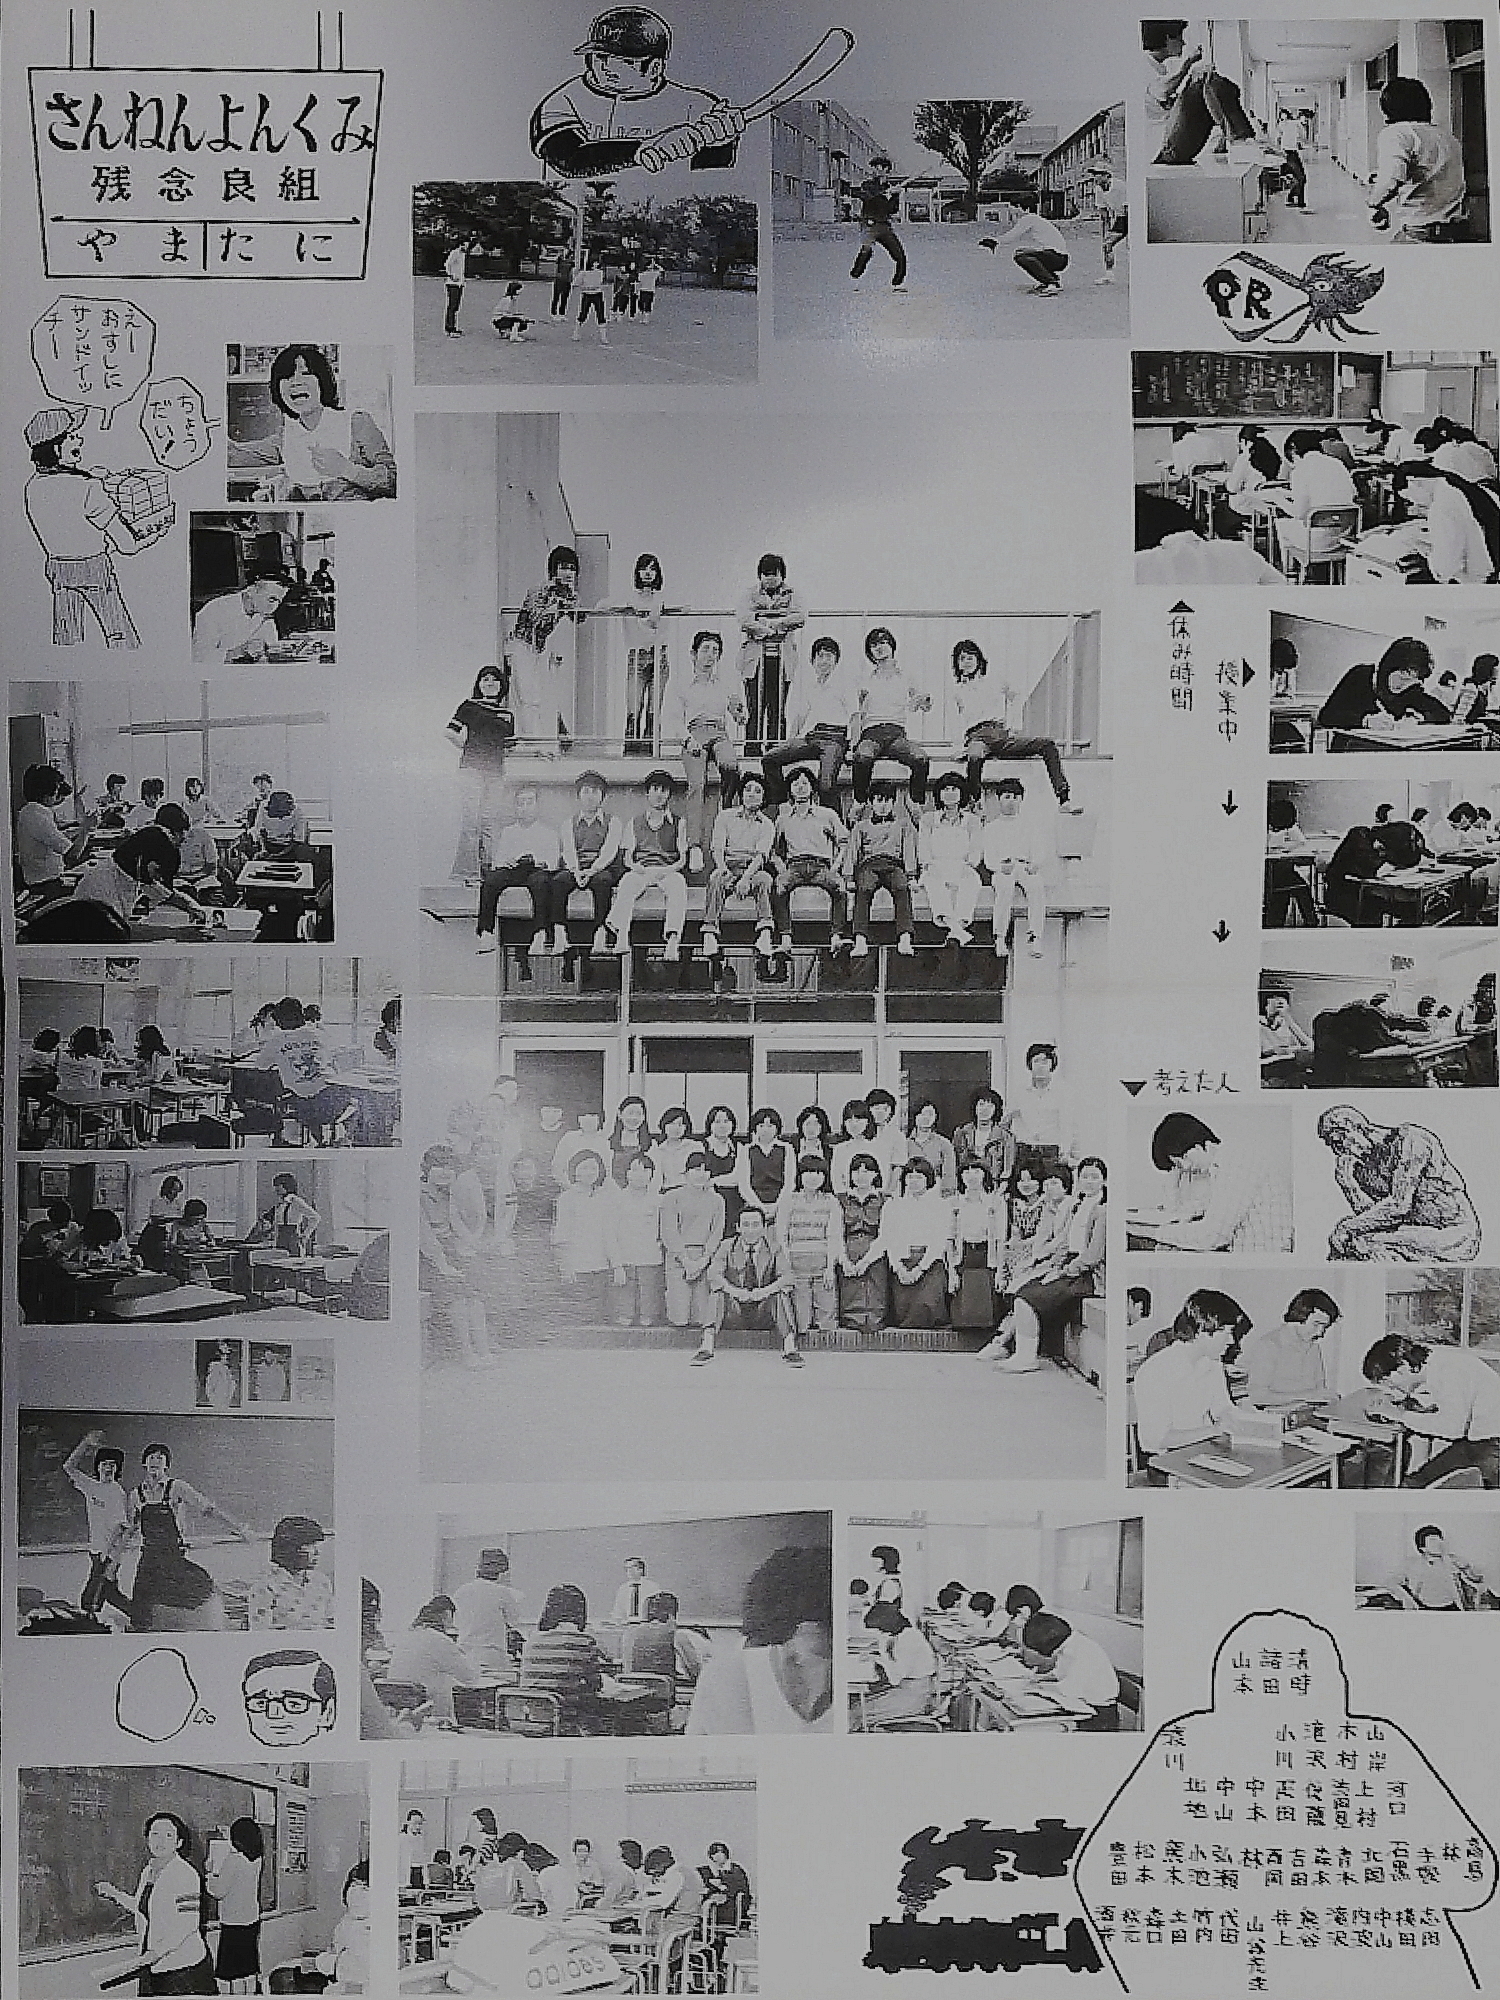 さんねんよんくみ
残念良組
やま たに
えー
おすしに
サンドイッ
チー
ちょう
だい！
PR
▲休み時間
授業中▶
↓
↓
▼考えた人
山本 諸田 清時
小川 滝沢 木村 山岸
北地 中山 中本 疋田 後藤 上村 河口
豊田 松本 小池 弘瀬 林 西岡 吉田 森本 青木 北岡 石黒 林 高島
酒井 秋元 森口 土田 竹内 代田 山谷先生 井上 熊谷 滝沢 内沢 中山 横田 志田